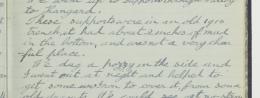 We went up to support
to Hangard.
These supports were in an old 1910
trench, it had about 2 inches of mud
in the bottom, and was not a very cheer
ful place.
We dug a pozzy in the side and
I went out at night and helped to
get some to cover it, from some
old We could see at